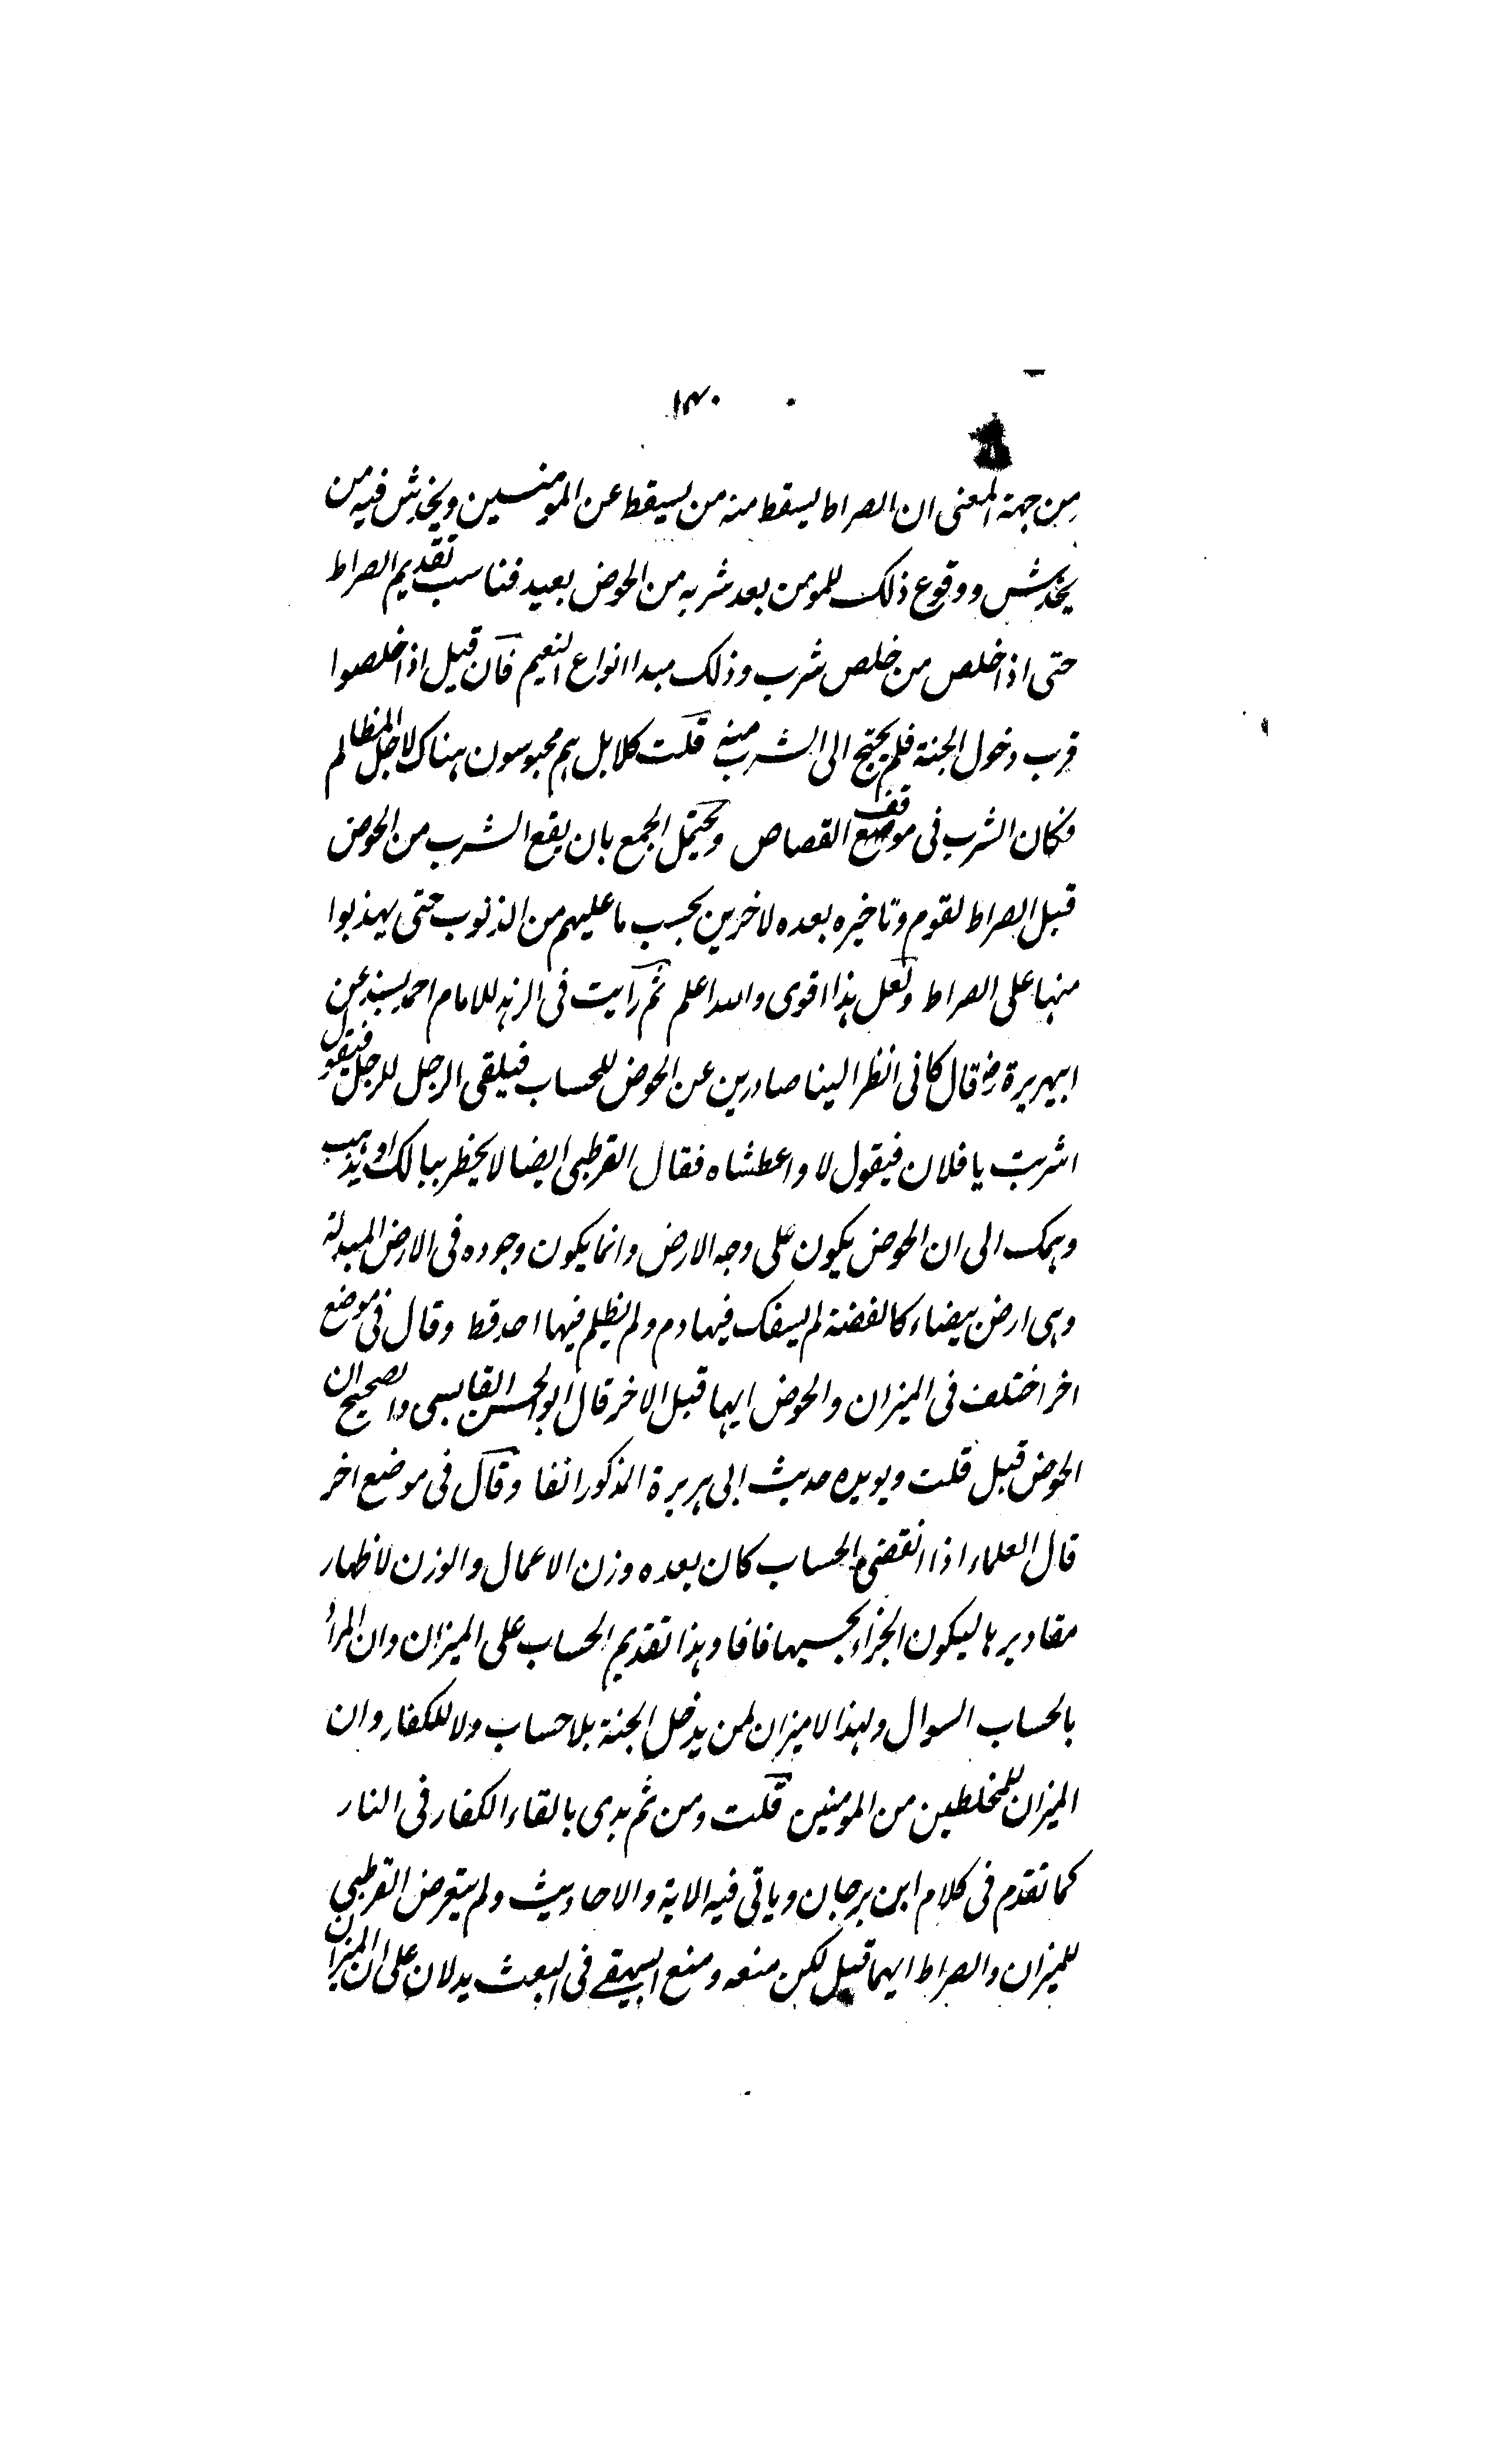 ١٣٠
من جهة المعنى ان الصراط يسقط منه من يسقط عن المومنسين ويخدش فيه من
يخدش ووقوع ذلك للمومن بعد شربه من الحوض بعيد فناسب تقديم الصراط
حتى اذا خلص من خلص شرب وذلك مبدا انواع النعيم فان قيل اذا خلصوا
قرب دخول الجنة فلم يحتج الى الشرب منه قلت كلا بل هم محبوسون هناك لاجل المظالم
فكان الشرب فى موقف القصاص ويحتمل الجمع بان يقع الشرب من الحوض
قبل الصراط لقوم وتاخيره بعده لاخرين بحسب ما عليهم من الذنوب حتى يهذبوا
منها على الصراط ولعل هذا اقوى والله اعلم ثم رايت فى الزهد للامام احمد بسنده عن
ابيهريرة رض قال كانى انظر الينا صادرين عن الحوض للحساب فيلقى الرجل للرجل فيقول
اشربت يا فلان فيقول لا واعطشاه فقال القرطبى ايضا لا يخطر ببالك او يذهب
وهمك الى ان الحوض يكون على وجه الارض وانما يكون وجوده فى الارض المبدلة
وهى ارض بيضاء كالفضة لم يسفك فيها دم ولم يظلم فيها احد قط وقال فى موضع
اخر اختلف فى الميزان والحوض ايهما قبل الاخر قال ابو الحسن القابسى والصحيح ان
الحوض قبل قلت ويويده حديث ابى هريرة المذكور انفا وقال فى موضع اخر
قال العلماء اذا انقضى الحساب كان بعده وزن الاعمال والوزن لاظهار
مقاديرها ليكون الجزاء بحسبها فافاد هذا تقديم الحساب على الميزان وان المراد
بالحساب السوال ولهذا لا ميزان لمن يدخل الجنة بلا حساب ولا للكفار وان
الميزان للمخلطين من المومنين قلت ومن ثم بدى بالقاء الكفار فى النار
كما تقدم فى كلام ابن برجان وياتى فيه الاية والاحاديث ولم يتعرض القرطبى
للميزان والصراط ايهما قبل لكن منعه ومنع البيهقے فى البعث يدلان على ان الميزان